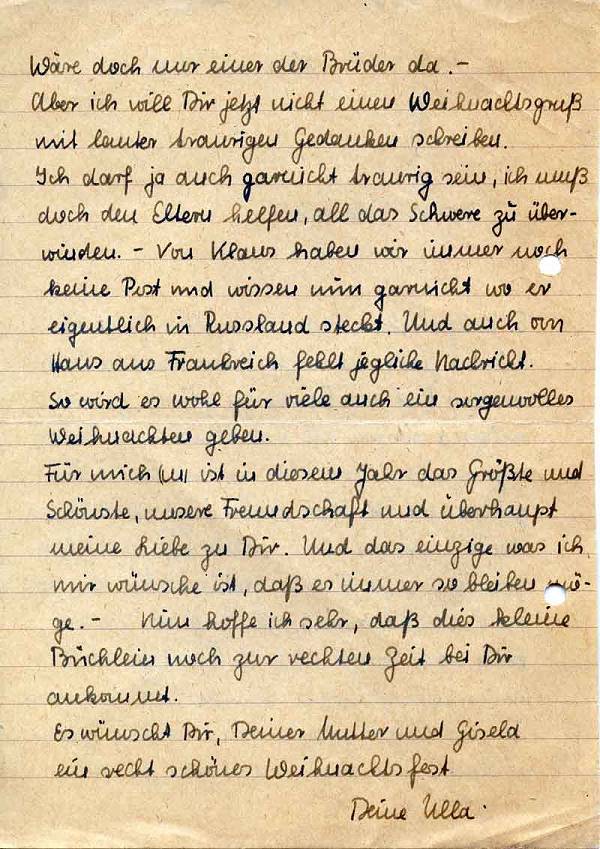 Wäre doch nur einer der Brüder da.-
Aber ich will Dir jetzt nicht einen Weihnachtsgruß
mit lauter traurigen Gedanken schreiben.
Ich darf ja auch garnicht traurig sein, ich muß
doch den Eltern helfen, all das Schwere zu über-
winden. - Von Klaus haben wir immer noch
keine Post und wissen nun garnicht wo er
eigentlich in Russland steckt. Und auch von
Hans aus Frankreich fehlt jegliche Nachricht.
So wird es wohl für viele auch ein sorgenvolles
Weihnachten geben.
Für mich ist in diesem Jahr das Größte und
Schönste, unsere Freundschaft und überhaupt
meine Liebe zu Dir. Und das einzige was ich
mir wünsche ist, daß es immer so bleiben mö-
ge.- Nun hoffe ich sehr, daß dies kleine
Büchlein noch zur rechten Zeit bei Dir
ankommt.
Es wünscht Dir, Deiner Mutter und Gisela
ein recht schönes Weihnachtsfest
Deine Ulla.